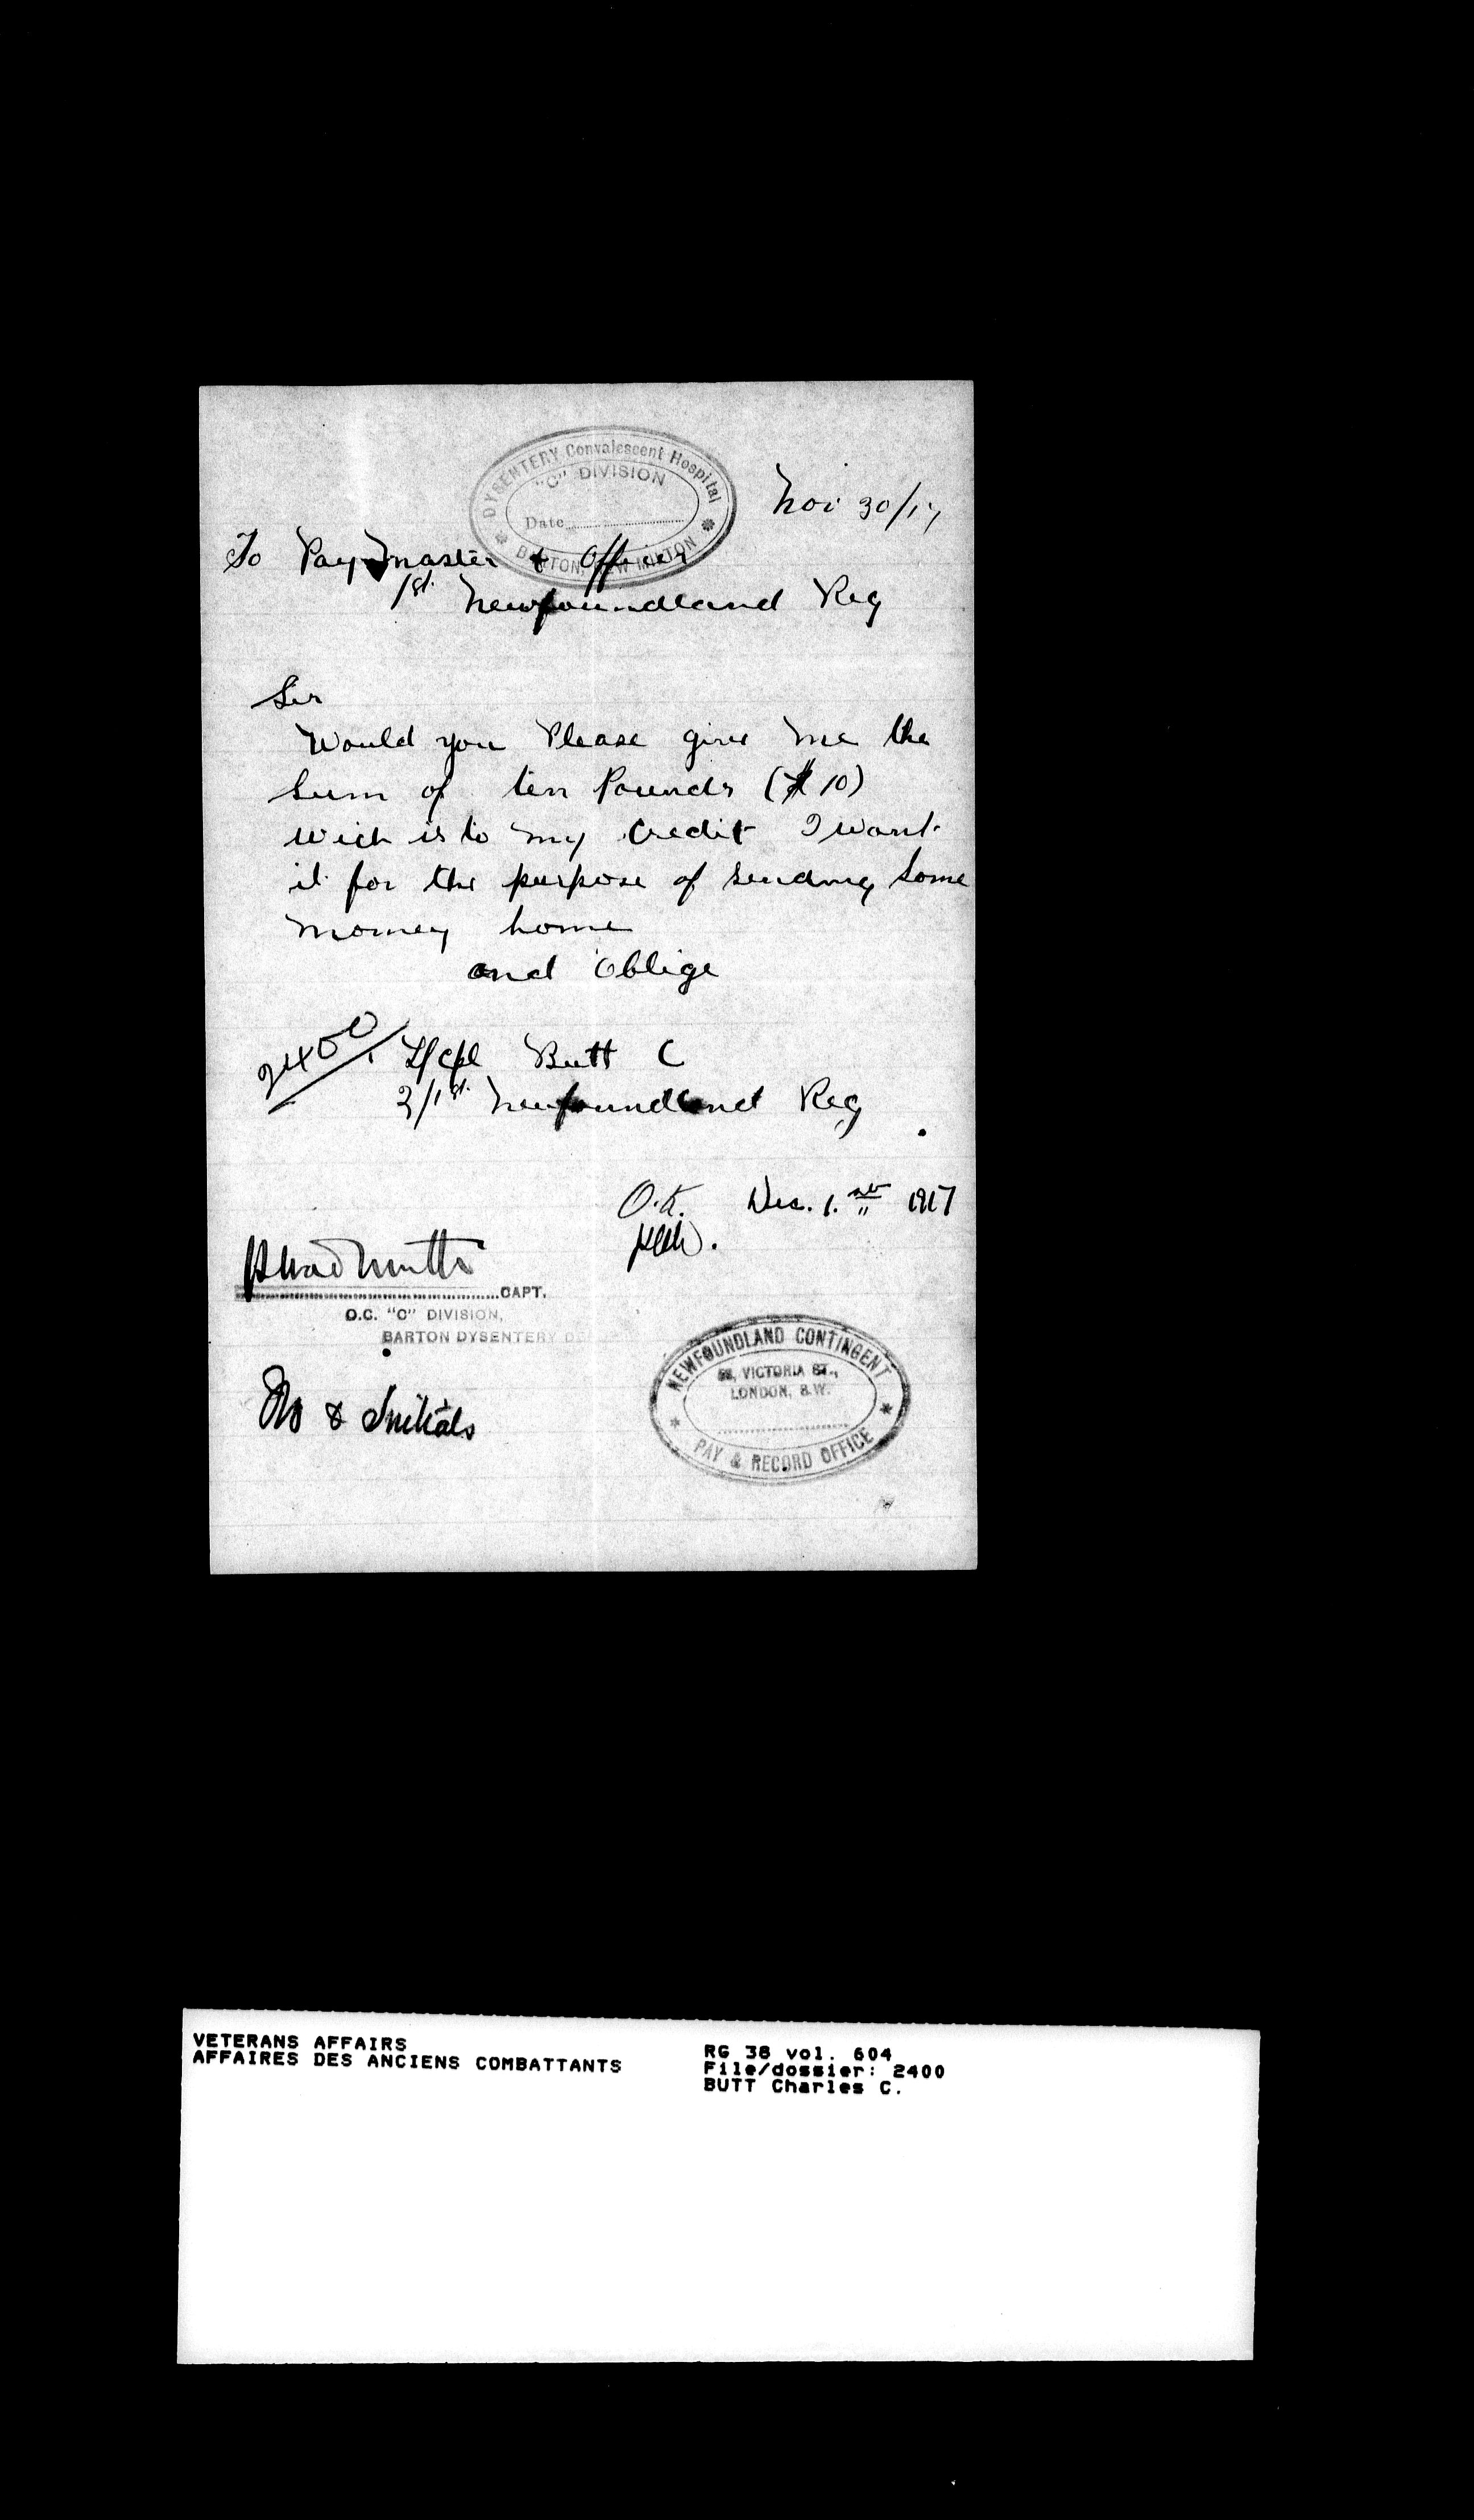 DYSENTERY Convalescent Hospital
"C" DIVISION
Date
BARTON, NEW MILTON
Nov 30/17
To Paymaster & Officer
1st Newfoundland Reg
Sir
Would you Please give me the
Sum of ten Pounds (£10)
wich is to my Credit I want
it for the purpose of sending Some
money home
and Oblige
2400 L/Cpl Butt C
2/1st Newfoundland Reg
O.K. Dec. 1.st 1917
CAPT.
O.C. "C" DIVISION,
BARTON DYSENTERY DE
No & Initials
NEWFOUNDLAND CONTINGENT
58, VICTORIA ST.,
LONDON, S.W.
PAY & RECORD OFFICE
VETERANS AFFAIRS
AFFAIRES DES ANCIENS COMBATTANTS
RG 38 vol. 604
File/dossier: 2400
BUTT Charles C.